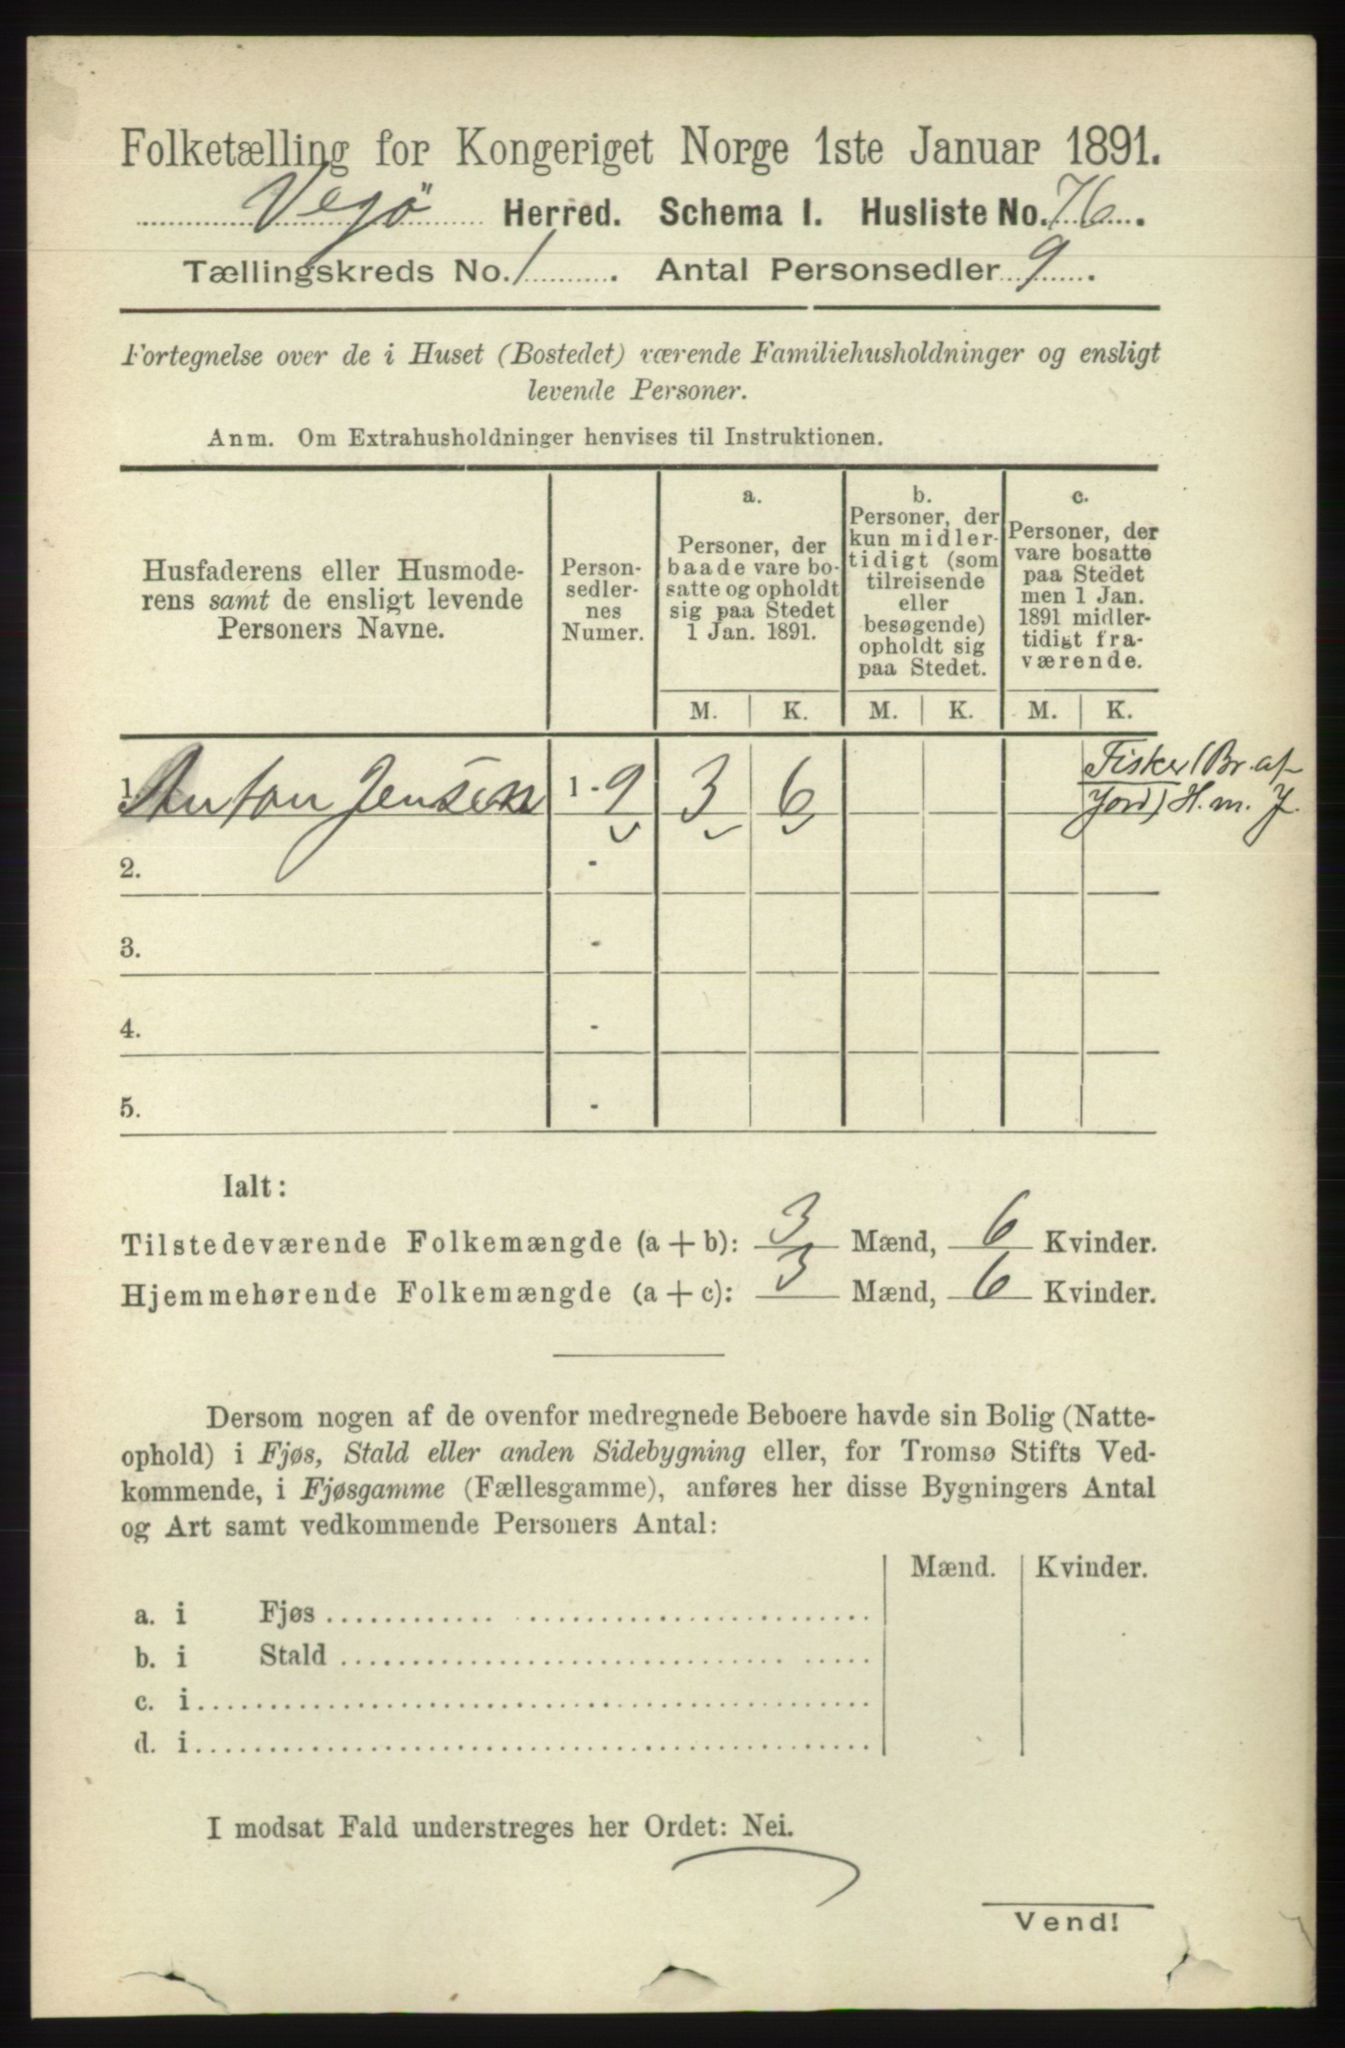 Folketælling for Kongeriget Norge 1ste Januar 1891.
Vegø Herred. Schema I. Husliste No. 76.
Tællingskreds No. 1. Antal Personsedler 9.
Fortegnelse over de i Huset (Bostedet) værende Familiehusholdninger og ensligt
levende Personer.
Anm. Om Extrahusholdninger henvises til Instruktionen.
Husfaderens eller Husmode-
rens samt de ensligt levende
Personers Navne.
Person-
sedler-
nes
Numer.
a.
Personer, der
baade vare bo-
satte og opholdt
sig paa Stedet
1 Jan. 1891.
b.
Personer, der
kun midler-
tidigt (som
tilreisende
eller
besøgende)
opholdt sig
paa Stedet.
c.
Personer, der
vare bosatte
paa Stedet
men 1 Jan.
1891 midler-
tidigt fra-
værende.
M. K. M. K. M. K.
1. Anton Jensen 1 - 9 3 6
Fisker (Br. af
Jord) H. m. J.
2. -
3. -
4. -
5. -
Ialt:
Tilstedeværende Folkemængde (a + b): 3 Mænd, 6 Kvinder.
Hjemmehørende Folkemængde (a + c): 3 Mænd, 6 Kvinder.
Dersom nogen af de ovenfor medregnede Beboere havde sin Bolig (Natte-
ophold) i Fjøs, Stald eller anden Sidebygning eller, for Tromsø Stifts Ved-
kommende, i Fjøsgamme (Fællesgamme), anføres her disse Bygningers Antal
og Art samt vedkommende Personers Antal:
Mænd. Kvinder.
a. i Fjøs
b. i Stald
c. i
d. i
I modsat Fald understreges her Ordet: Nei.
Vend!